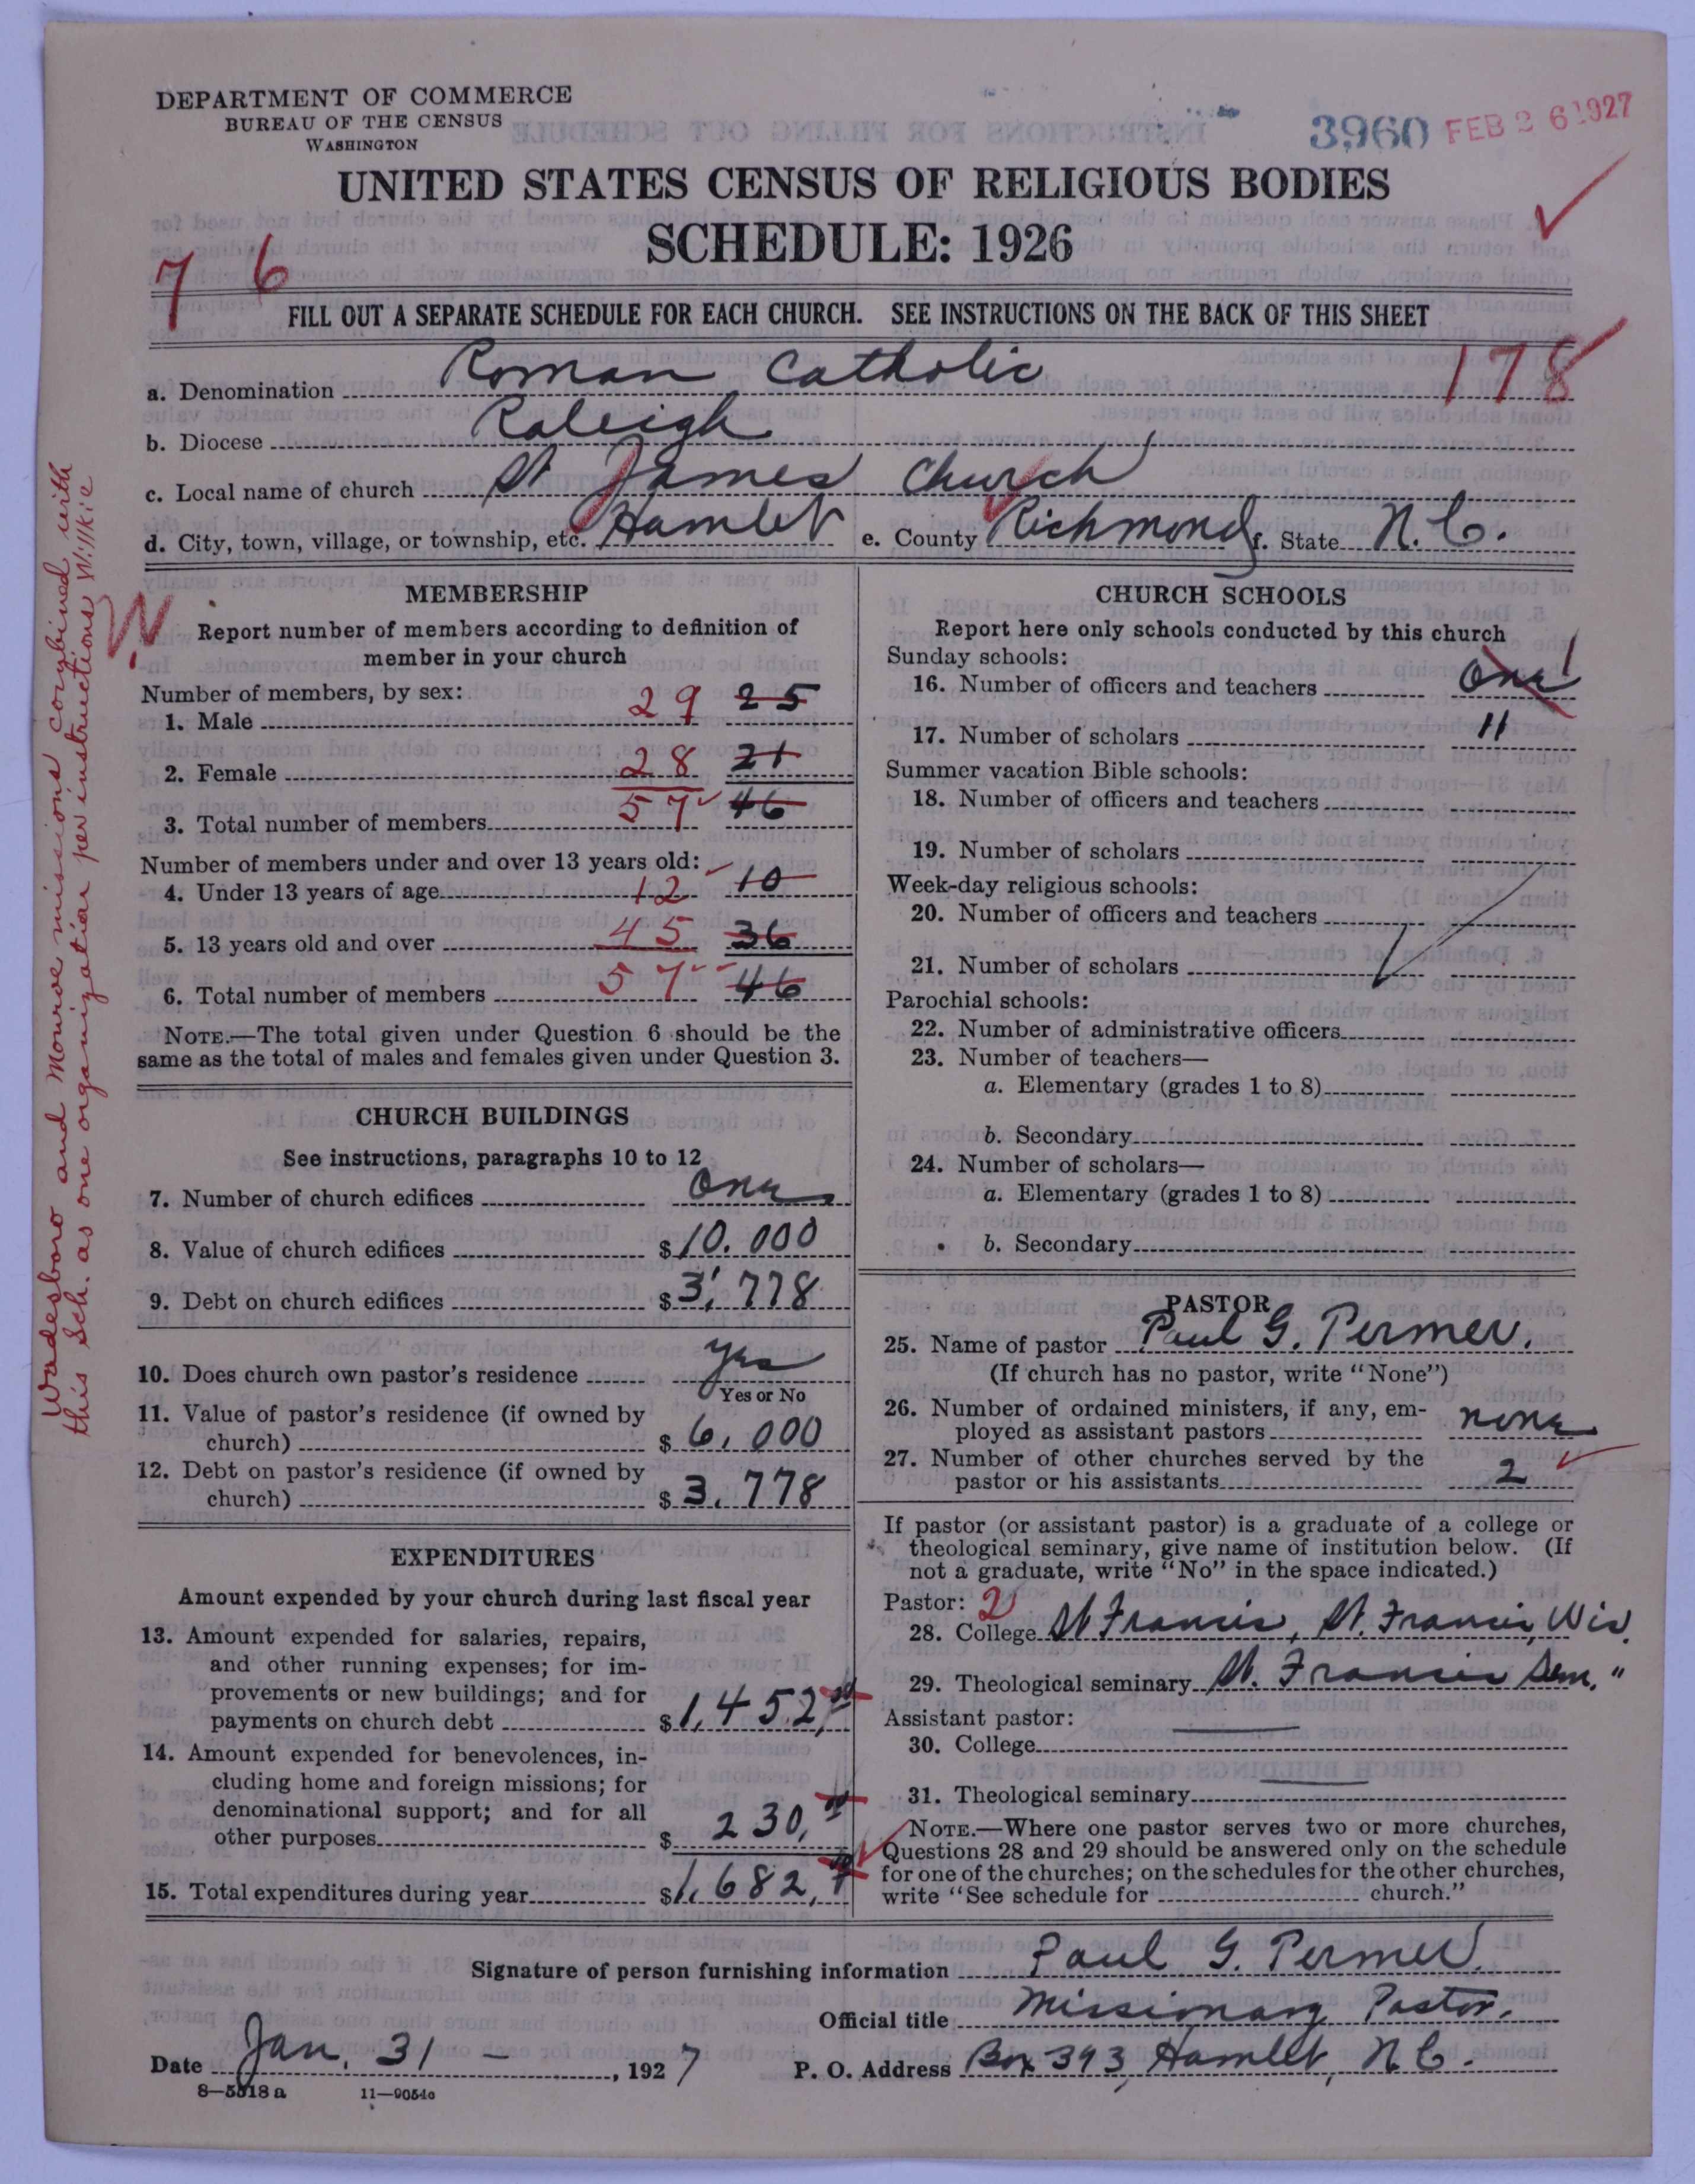 DEPARTMENT OF COMMERCE
BUREAU OF THE CENSUS
WASHINGTON
3960 FEB 26 1927
UNITED STATES CENSUS OF RELIGIOUS BODIES
SCHEDULE: 1926
7 6
FILL OUT A SEPARATE SCHEDULE FOR EACH CHURCH. SEE INSTRUCTIONS ON THE BACK OF THIS SHEET
178
a. Denomination Roman Catholic
b. Diocese Raleigh
c. Local name of church St James Church
d. City, town, village, or township, etc. Hamlet e. County Richmond f. State N. C.
Wadesboro and Monroe missions combined with
this Sch. as one organization per instructions Willkie
MEMBERSHIP
Report number of members according to definition of
member in your church
Number of members, by sex:
1. Male 29 25
2. Female 28 21
3. Total number of members 57 46
Number of members under and over 13 years old:
4. Under 13 years of age 12 10
5. 13 years old and over 45 36
6. Total number of members 57 46
NOTE.—The total given under Question 6 should be the
same as the total of males and females given under Question 3.
CHURCH BUILDINGS
See instructions, paragraphs 10 to 12
7. Number of church edifices One
8. Value of church edifices $10.000
9. Debt on church edifices $3,778
10. Does church own pastor's residence yes
Yes or No
11. Value of pastor's residence (if owned by
church) $6,000
12. Debt on pastor's residence (if owned by
church) $3,778
EXPENDITURES
Amount expended by your church during last fiscal year
13. Amount expended for salaries, repairs,
and other running expenses; for im-
provements or new buildings; and for
payments on church debt $1,452,
14. Amount expended for benevolences, in-
cluding home and foreign missions; for
denominational support; and for all
other purposes $230,
15. Total expenditures during year $1,682,
CHURCH SCHOOLS
Report here only schools conducted by this church
Sunday schools:
16. Number of officers and teachers One 1
17. Number of scholars 11
Summer vacation Bible schools:
18. Number of officers and teachers
19. Number of scholars
Week-day religious schools:
20. Number of officers and teachers
21. Number of scholars
Parochial schools:
22. Number of administrative officers
23. Number of teachers—
a. Elementary (grades 1 to 8)
b. Secondary
24. Number of scholars—
a. Elementary (grades 1 to 8)
b. Secondary
PASTOR
25. Name of pastor Paul G. Termer.
(If church has no pastor, write "None")
26. Number of ordained ministers, if any, em-
ployed as assistant pastors none
27. Number of other churches served by the
pastor or his assistants 2
If pastor (or assistant pastor) is a graduate of a college or
theological seminary, give name of institution below. (If
not a graduate, write "No" in the space indicated.)
Pastor: 2
28. College St Francis, St. Francis, Wis.
29. Theological seminary St. Francis Sem. "
Assistant pastor:
30. College
31. Theological seminary
NOTE.—Where one pastor serves two or more churches,
Questions 28 and 29 should be answered only on the schedule
for one of the churches; on the schedules for the other churches,
write "See schedule for church."
Signature of person furnishing information Paul G. Termer.
Official title Missionary Pastor.
Date Jan. 31 – , 1927 P. O. Address Box 393, Hamlet, N. C.
8—5518 a 11—9054c